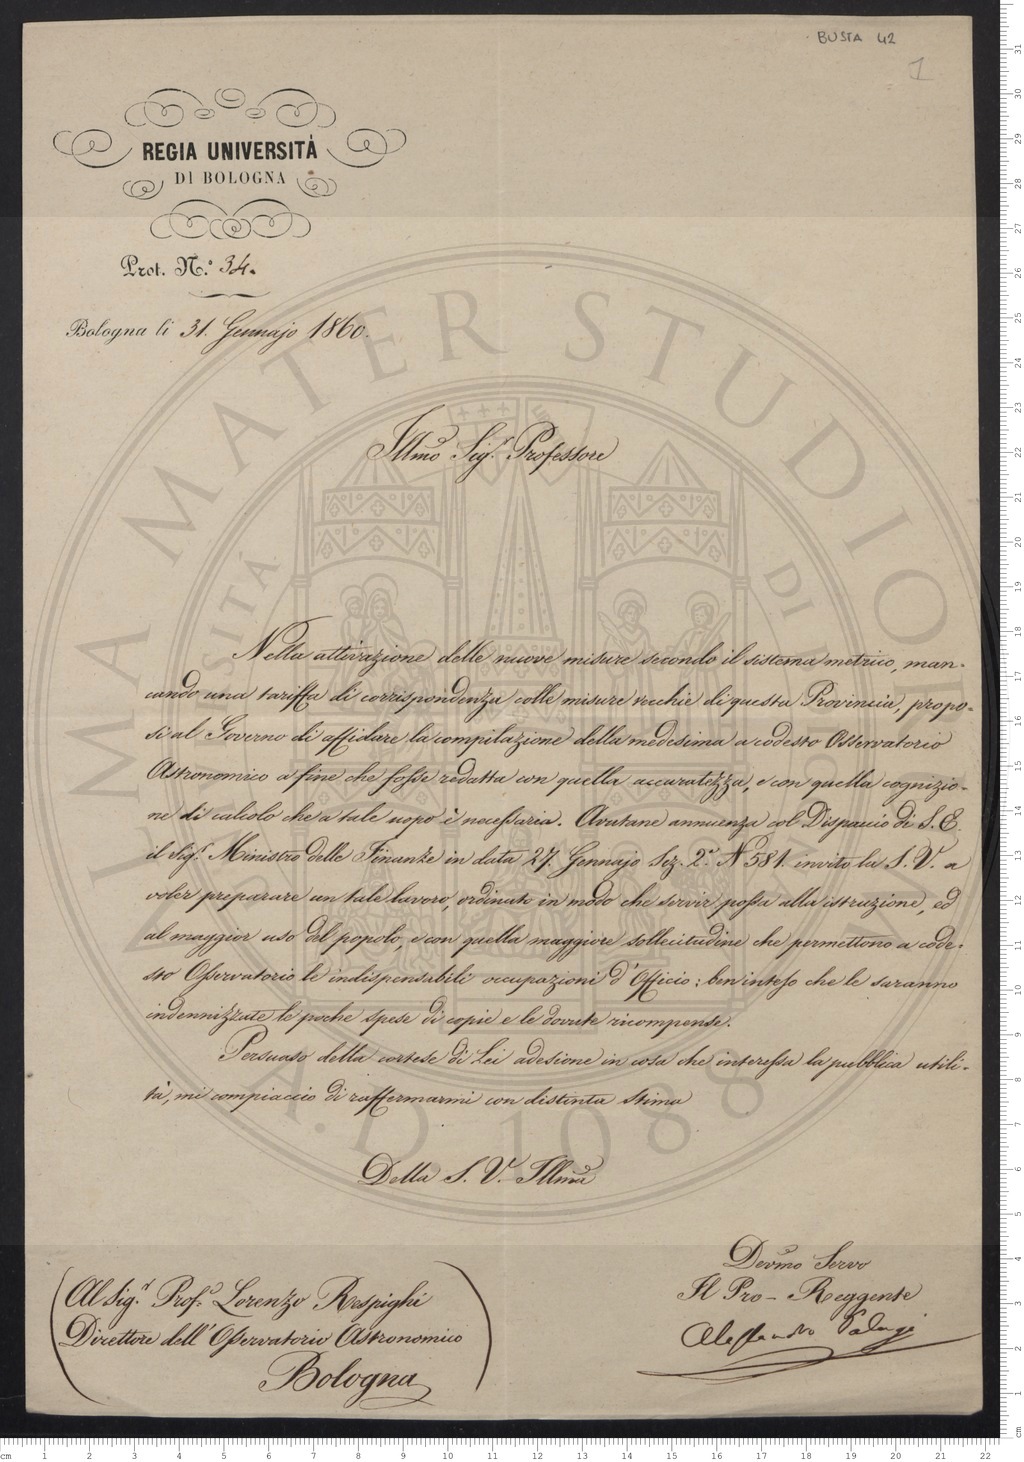 BUSTA 42
1
REGIA UNIVERSITÀ
DI BOLOGNA
Prot. N.° 34.
Bologna li 31. Gennajo 1860.
Illmo Sig.r Professore
Nella attivazione delle nuove misure secondo il sistema metrico, man-
cando una tariffa di corrispondenza colle misure vecchie di questa Provincia, propo-
si al Governo di affidare la compilazione della medesima a codesto Osservatorio
Astronomico a fine che fosse redatta con quella accuratezza, e con quella cognizio-
ne di calcolo che a tale uopo è necessaria. Avutane annuenza col Dispaccio di S. E.
il Sig.r Ministro delle Finanze in data 27. Gennajo Sez. 2.a N 581. invito la S. V. a
voler preparare un tale lavoro, ordinato in modo che servir possa alla istruzione, ed
al maggior uso del popolo, e con quella maggiore sollecitudine che permettono a code-
sto Osservatorio le indispensabili occupazioni d'Officio; ben inteso che le saranno
indennizzate le poche spese di copie e le dovute ricompense.
Persuaso della cortese di Lei adesione in cosa che interessa la pubblica utili-
tà, mi compiaccio di raffermarmi con distinta stima
Della S. V. Illma
Devmo Servo
Il Pro-Reggente
Alessandro Palagi
Al Sig.r Prof.e Lorenzo Respighi
Direttore dell'Osservatorio Astronomico
Bologna
ALMA MATER STUDIORUM
UNIVERSITÀ DI BOLOGNA
A.D. 1088